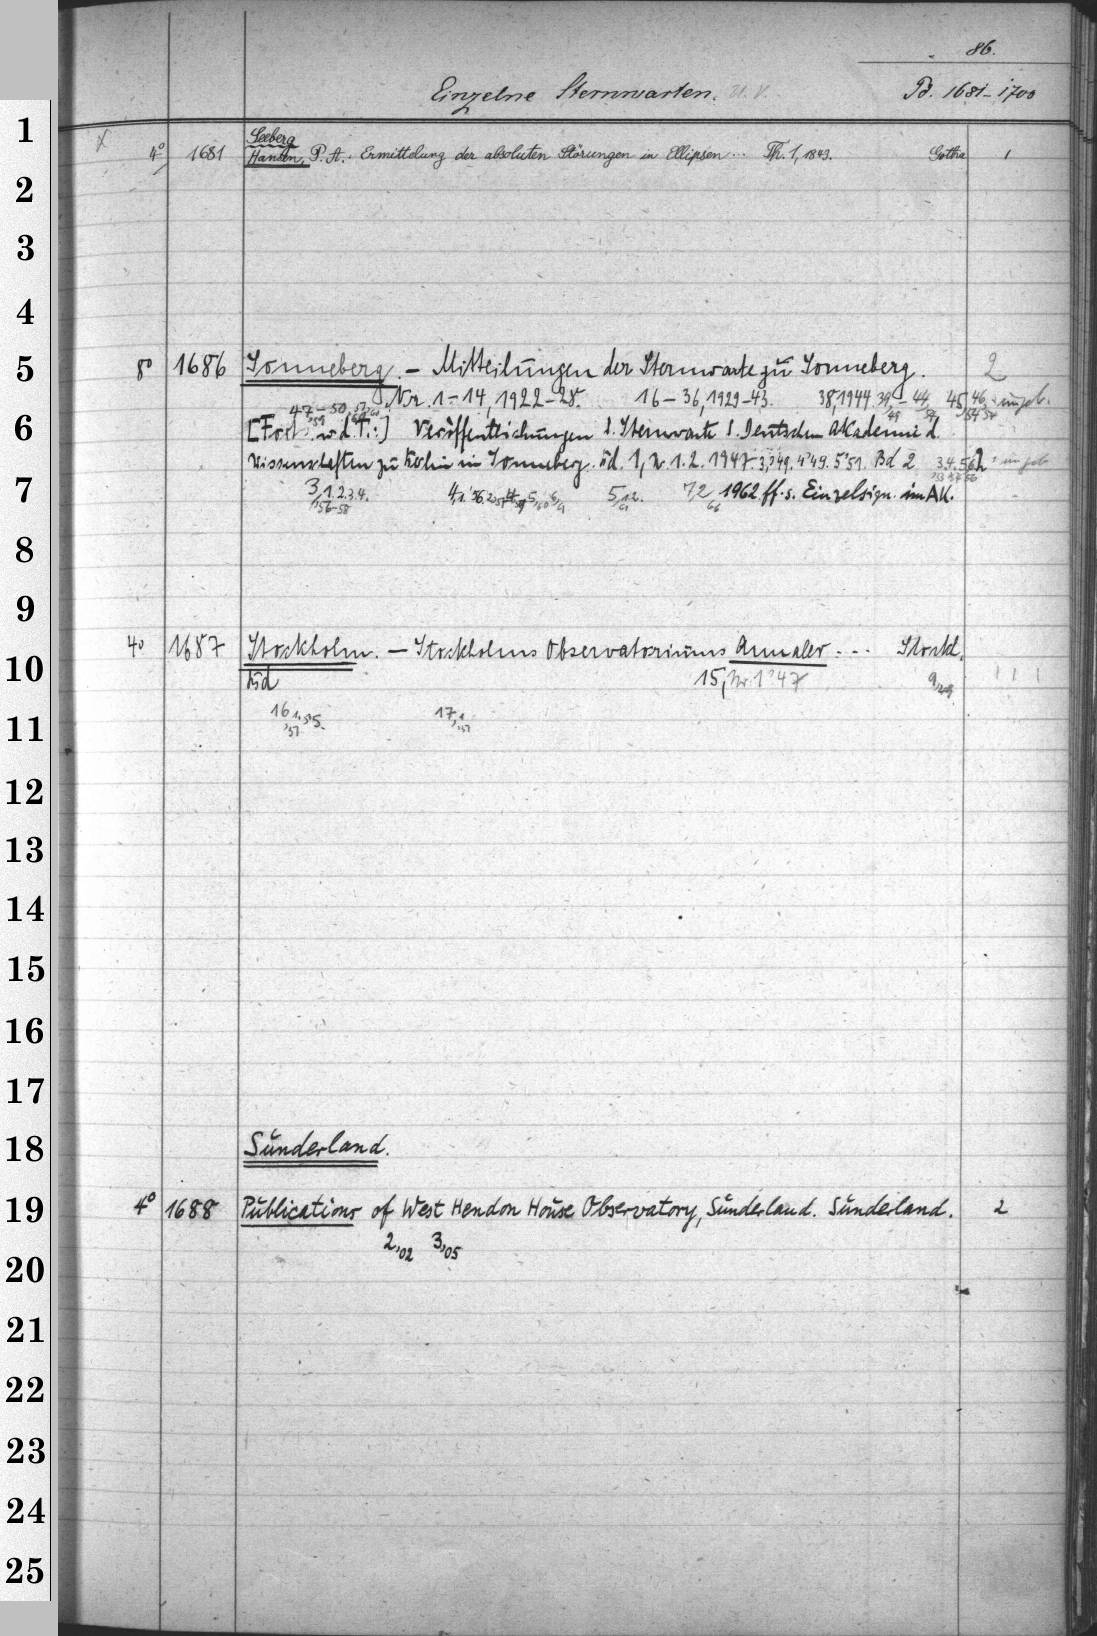 86.
Einzelne Sternwarten. U. V. Pd. 1681-1700
1
Seeberg
4° 1681 Hansen, P. A. Ermittelung der absoluten Störungen in Ellipsen ... Th. 1, 1843. Gotha 1
2
3
4
5
8° 1686 Sonneberg. – Mitteilungen der Sternwarte zu Sonneberg. 2
Nr. 1-14, 1922-28. 16-36, 1929-43. 38, 1944
6
[Forts. u. d. T.:] Veröffentlichungen d. Sternwarte d. Deutschen Akademie d.
Wissenschaften zu Berlin in Sonneberg. Bd. 1, 1947. Bd 2
7
3, 1.2.3.4. 56-58 1962 ff. s. Einzelsign. im AK.
8
9
4° 1687 Stockholm. – Stockholms Observatoriums Annaler ... Stockh.
10
Bd 15, Nr. 1 '47 1 1 1
16 17
11
12
13
14
15
16
17
18 Sunderland.
19
4° 1688 Publications of West Hendon House Observatory, Sunderland. Sunderland. 2
2,02 3,05
20
21
22
23
24
25